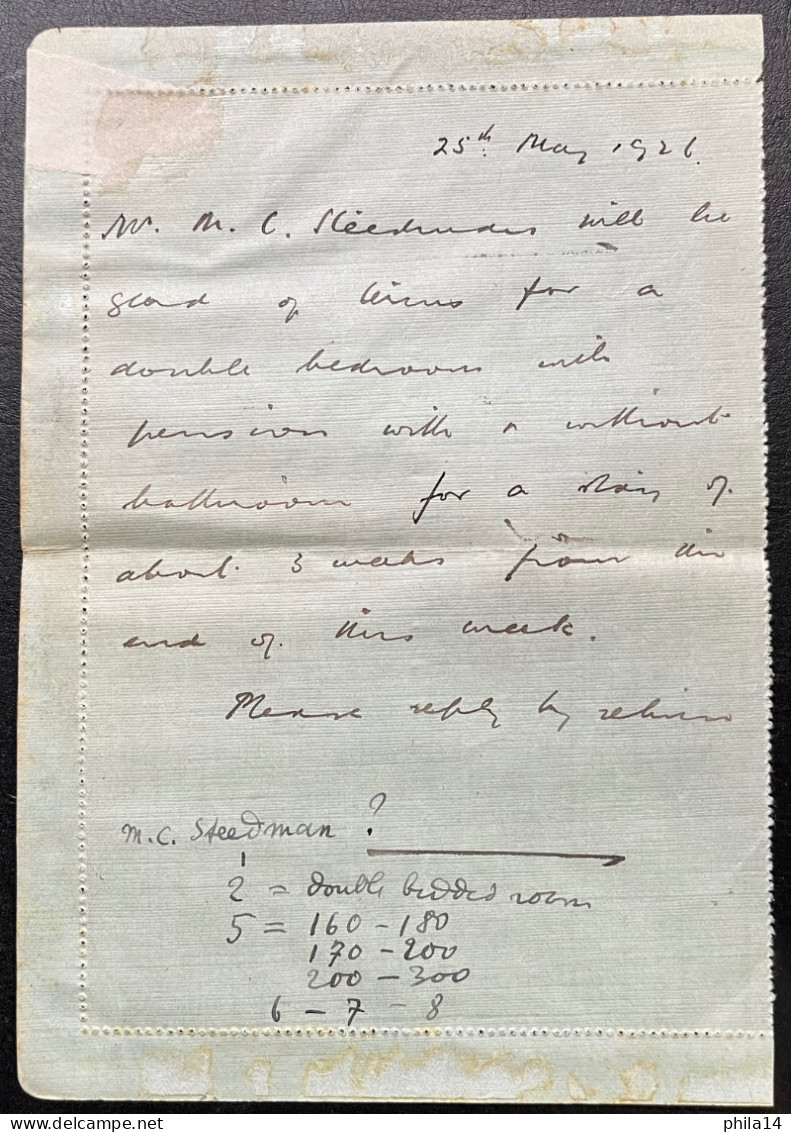 25th May 1926.
Mr. M. C. Steedman will be
glad of terms for a
double bedroom with
pension with or without
bathroom for a stay of
about 3 weeks from the
end of this week.
Please reply by return
M.C. Steedman ?
1
2 = double bedded room
5 = 160 - 180
170 - 200
200 - 300
6 - 7 - 8
phila14